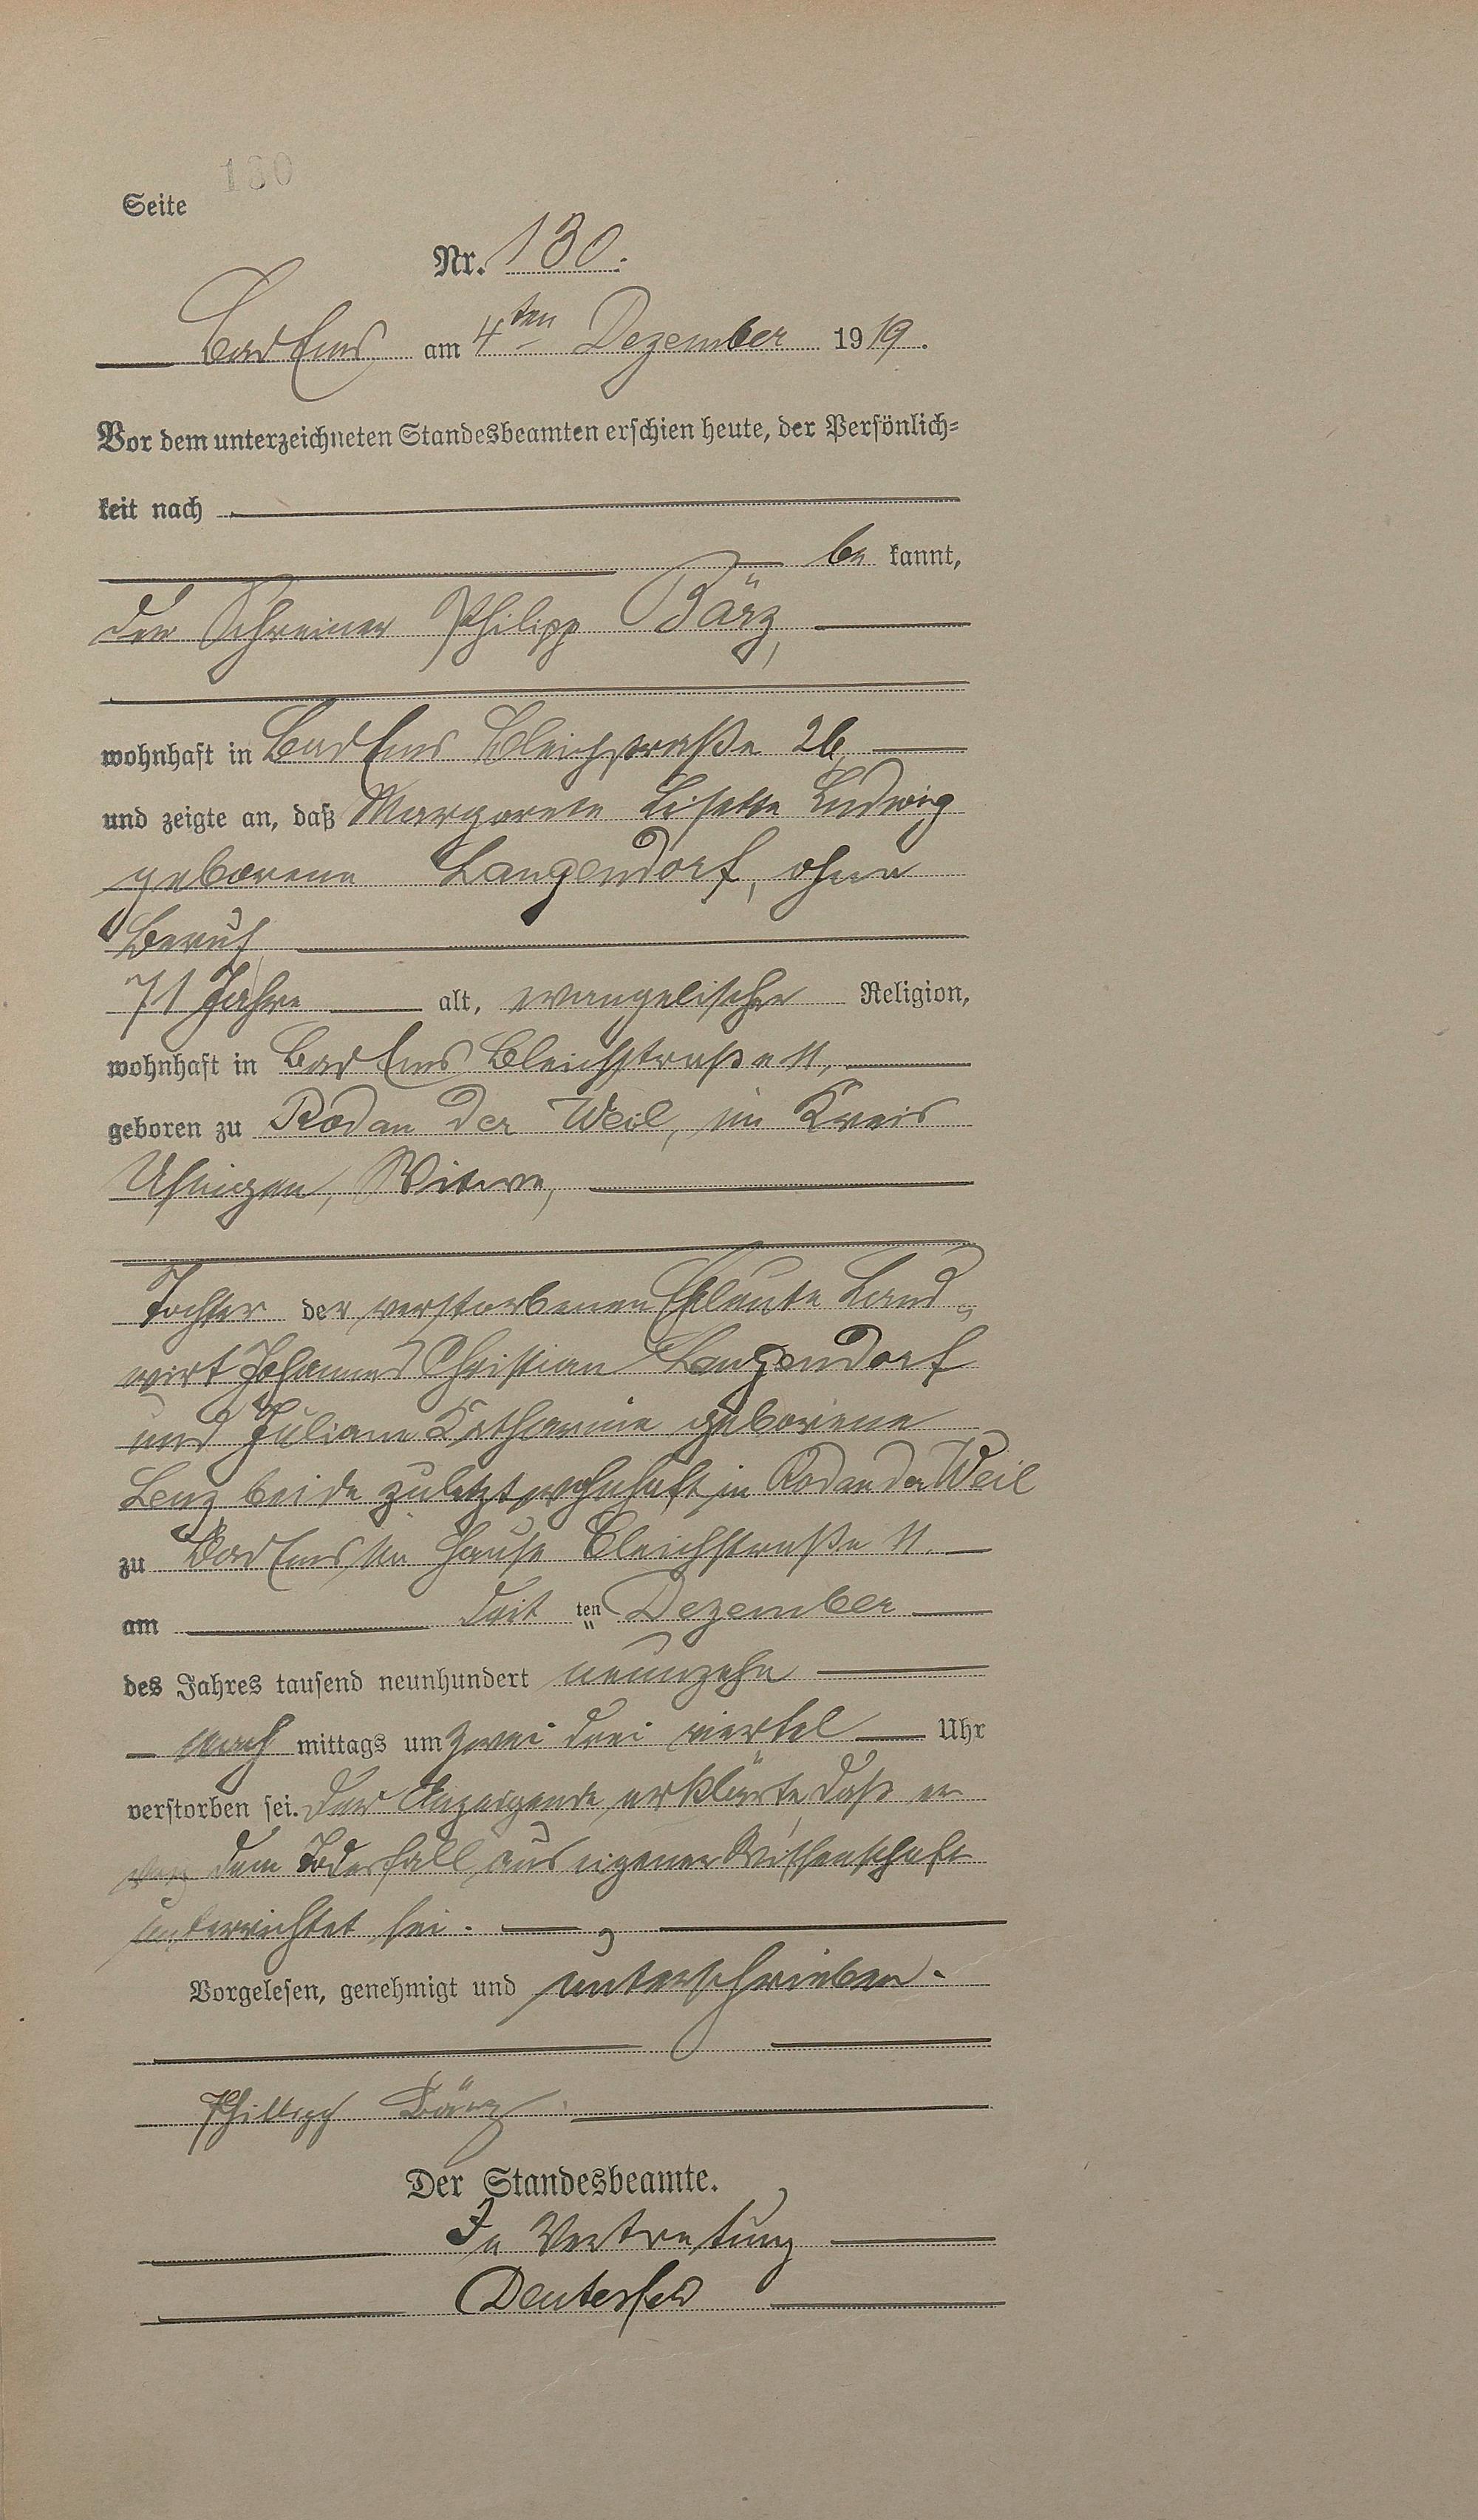 130
Seite
Nr. 130.
Bad Ems am 4ten Dezember 1919.
Vor dem unterzeichneten Standesbeamten erschien heute, der Persönlich=
keit nach
be kannt,
der Schreiner Philipp Bärz,
wohnhaft in Bad Ems Bleichstraße 26,
und zeigte an, daß Margarete Lisette Ludwig
geborene Langendorf, ohne
Beruf,
71 Jahre alt, evangelischer Religion,
wohnhaft in Bad Ems Bleichstraße 11,
geboren zu Rod an der Weil, im Kreis
Usingen, Witwe,
Tochter der verstorbenen Eheleute Land=
wirt Johannes Christian Langendorf
und Juliane Katharine geborene
Lenz beide zuletzt wohnhaft in Rod an der Weil
zu Bad Ems im Hause Bleichstraße 11.
am dritten Dezember
des Jahres tausend neunhundert neunzehn
nach mittags um zwei drei viertel Uhr
verstorben sei. Der Anzeigende erklärte, daß er
von dem Todesfall aus eigener Wissenschaft
unterrichtet sei.
Vorgelesen, genehmigt und unterschrieben.
Philipp Bärz
Der Standesbeamte.
In Vertretung